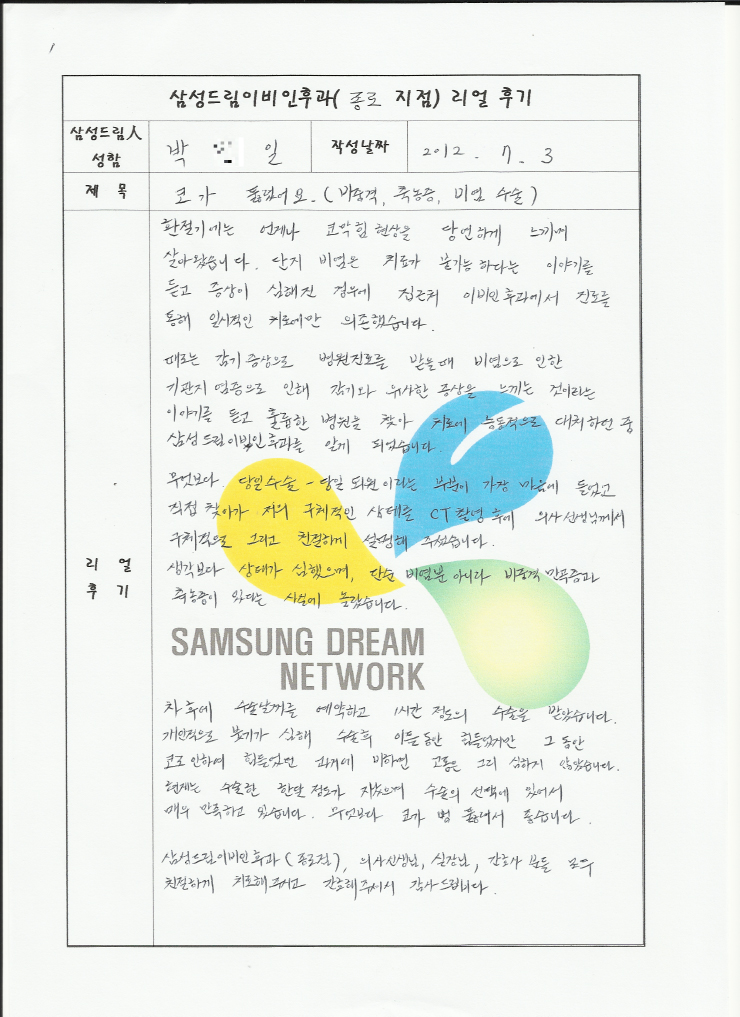 삼성드림이비인후과( 종로 지점) 리얼 후기
삼성드림人 성함
박 일
작성날짜
2012. 7. 3
제 목
코가 뚫렸어요. (비중격, 축농증, 비염 수술)
리 얼
후 기
환절기에는 언제나 코막힘 현상을 당연하게 느끼며
살아왔습니다. 단지 비염은 치료가 불가능 하다는 이야기를
듣고 증상이 심해진 경우에 집근처 이비인후과에서 진료를
통해 일시적인 치료에만 의존했습니다.
때로는 감기 증상으로 병원진료를 받을때 비염으로 인한
기관지 염증으로 인해 감기와 유사한 증상을 느끼는 것이라는
이야기를 듣고 훌륭한 병원을 찾아 치료에 능동적으로 대처하던 중
삼성드림이비인후과를 알게 되었습니다.
무엇보다. 당일수술 - 당일 퇴원이라는 부분이 가장 마음에 들었고
직접 찾아가 저의 구체적인 상태를 CT 촬영 후에 의사선생님께서
구체적으로 그리고 친절하게 설명해 주셨습니다.
생각보다 상태가 심했으며, 단순 비염뿐 아니라 비중격 만곡증과
축농증이 있다는 사실에 놀랐습니다.
SAMSUNG DREAM
NETWORK
차후에 수술날짜를 예약하고 1시간 정도의 수술을 받았습니다.
개인적으로 붓기가 심해 수술후 이튿동안 힘들었지만 그 동안
코로 인하여 힘들었던 과거에 비하면 고통은 그리 심하지 않았습니다.
현재는 수술한 한달 정도가 지났으며 수술의 선택에 있어서
매우 만족하고 있습니다. 무엇보다 코가 뻥 뚫려서 좋습니다.
삼성드림이비인후과 (종로점), 의사선생님, 실장님, 간호사 분들 모두
친절하게 치료해주시고 간호해주셔서 감사드립니다.